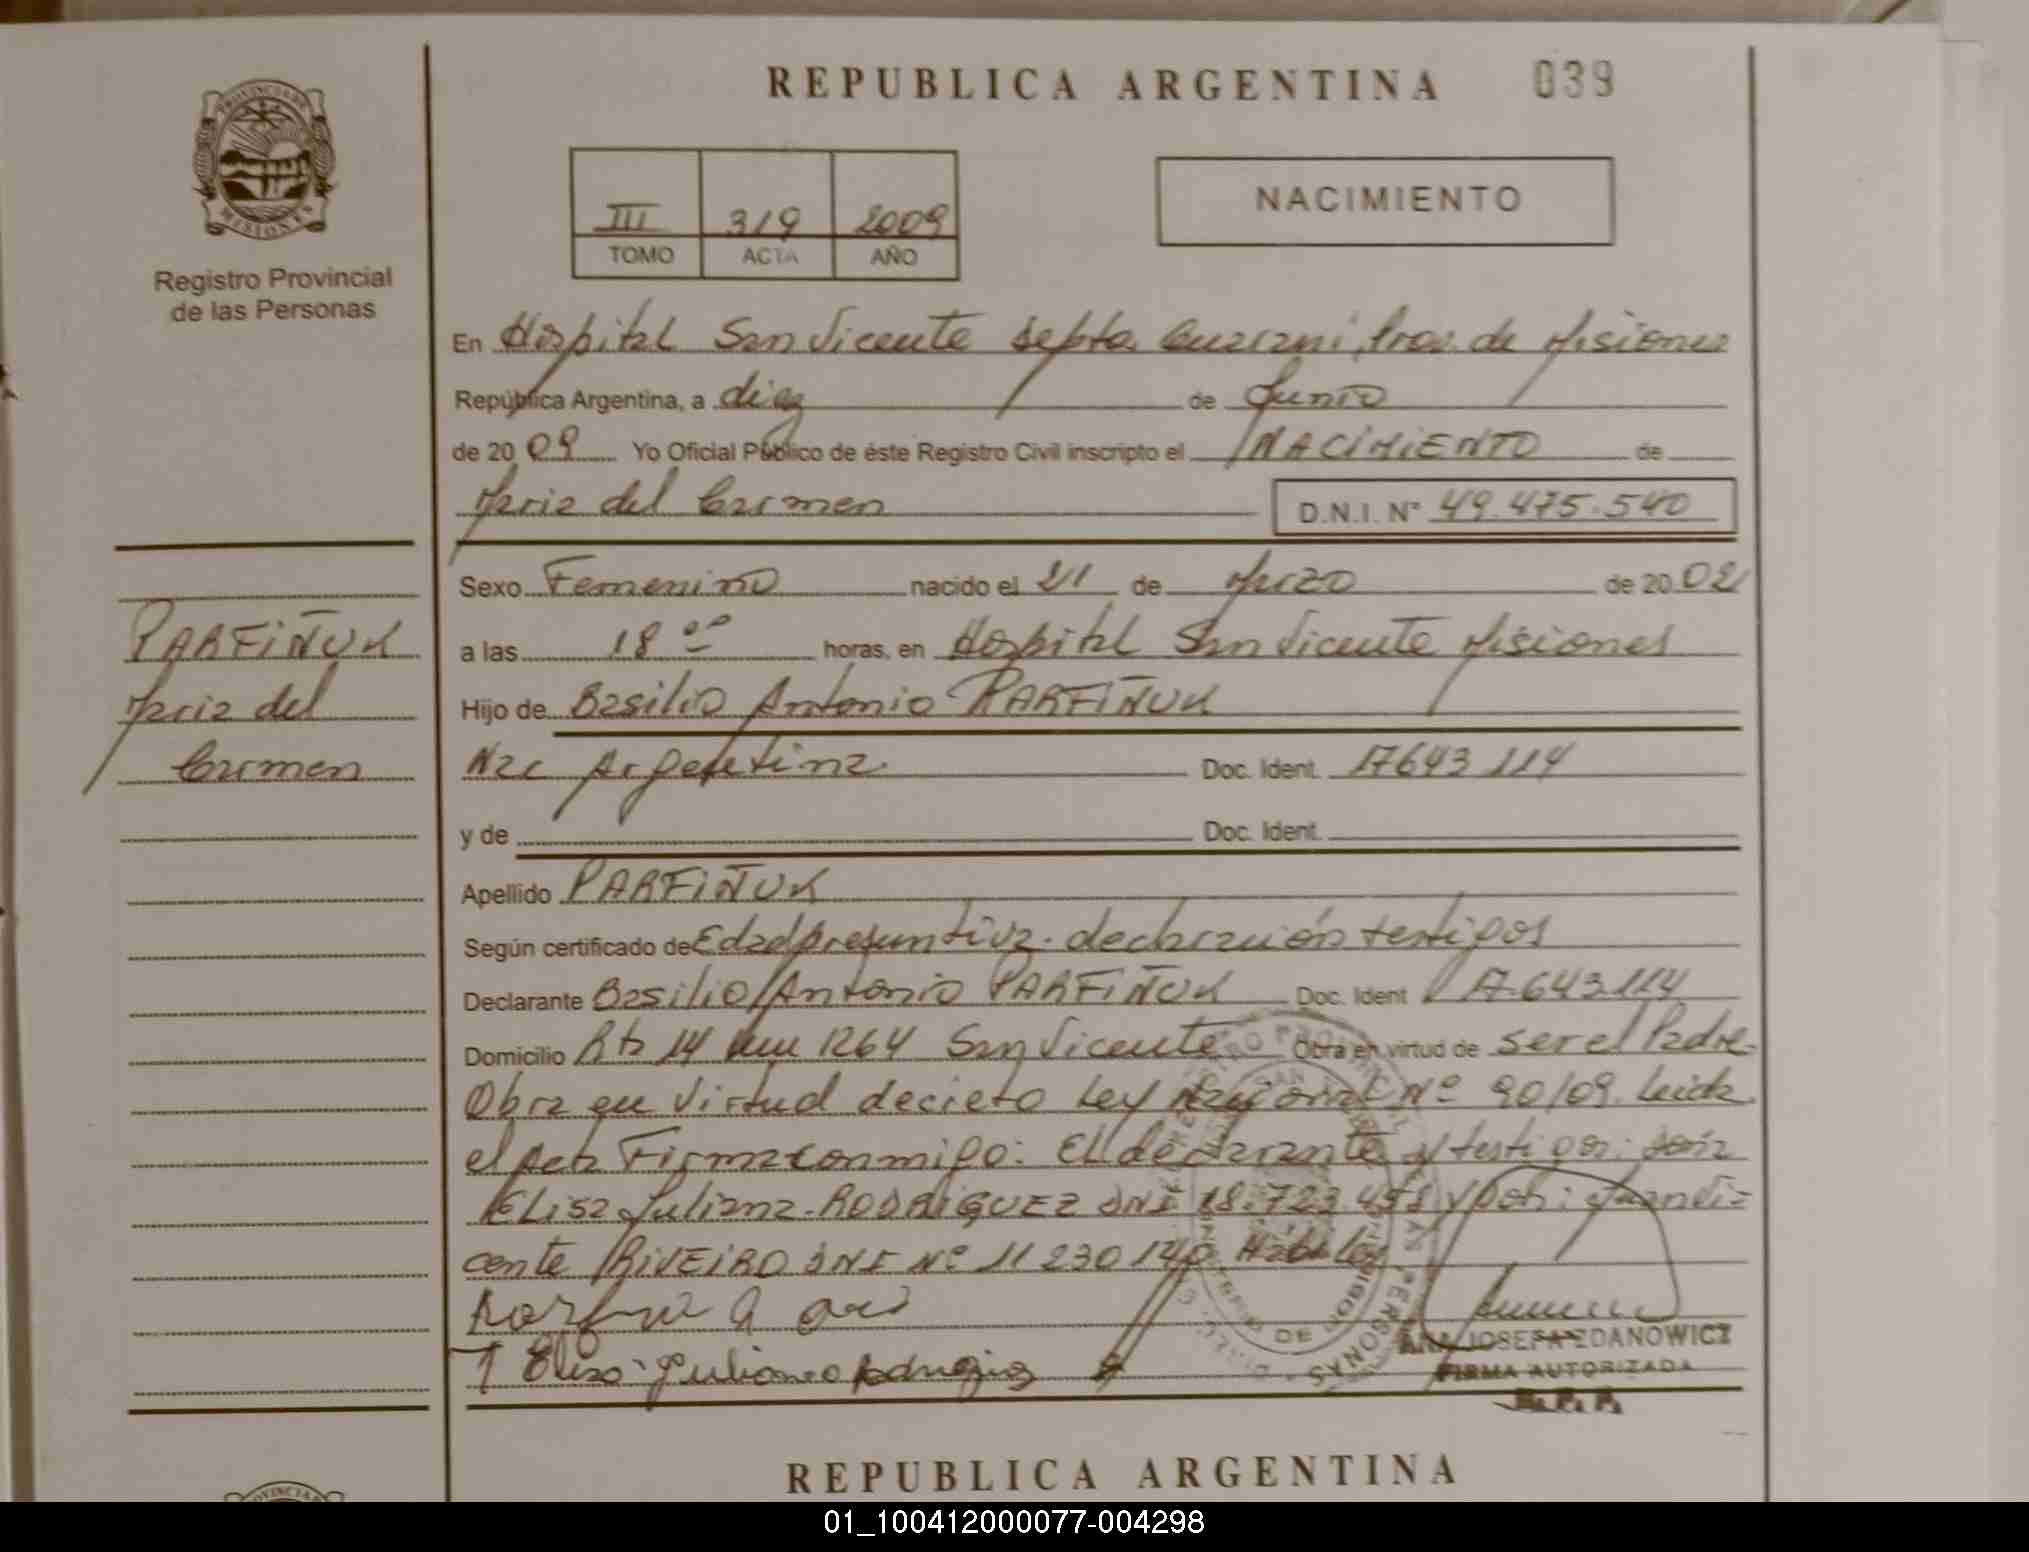 REPUBLICA ARGENTINA 039
PROVINCIA DE
MISIONES
Registro Provincial
de las Personas
III 319 2009
TOMO ACTA AÑO
NACIMIENTO
En Hospital San Vicente Depto. Guarani, Prov. de Misiones
República Argentina, a diez de Junio
de 20 09 Yo Oficial Público de éste Registro Civil inscripto el NACIMIENTO de
Maria del Carmen D.N.I. N° 49.475.540
Sexo Femenino nacido el 21 de Marzo de 20 02
a las 18 00 horas, en Hospital San Vicente Misiones
Hijo de Basilio Antonio PARFIÑUK
Nac Argentina Doc. Ident. 17643 114
y de Doc. Ident.
Apellido PARFIÑUK
Según certificado de Edad presuntiva. declaración testigos
Declarante Basilio Antonio PARFIÑUK Doc. Ident 17.643.114
Domicilio Rta 14 km 1264 San Vicente Obra en virtud de ser el Padre
Obra en Virtud decreto Ley Nacional Nº 90/09. Leida
el Acta Firma conmigo: El declarante y testigos:
Elisa Juliana RODRIGUEZ DNI 18.723.458 y por: Juan Vi=
cente RIVEIRO DNI Nº 11 230 140 Habiles
Elisa Juliana Rodriguez
ANA JOSEFA ZDANOWICZ
FIRMA AUTORIZADA
PARFIÑUK
Maria del
Carmen
REPUBLICA ARGENTINA
01_100412000077-004298